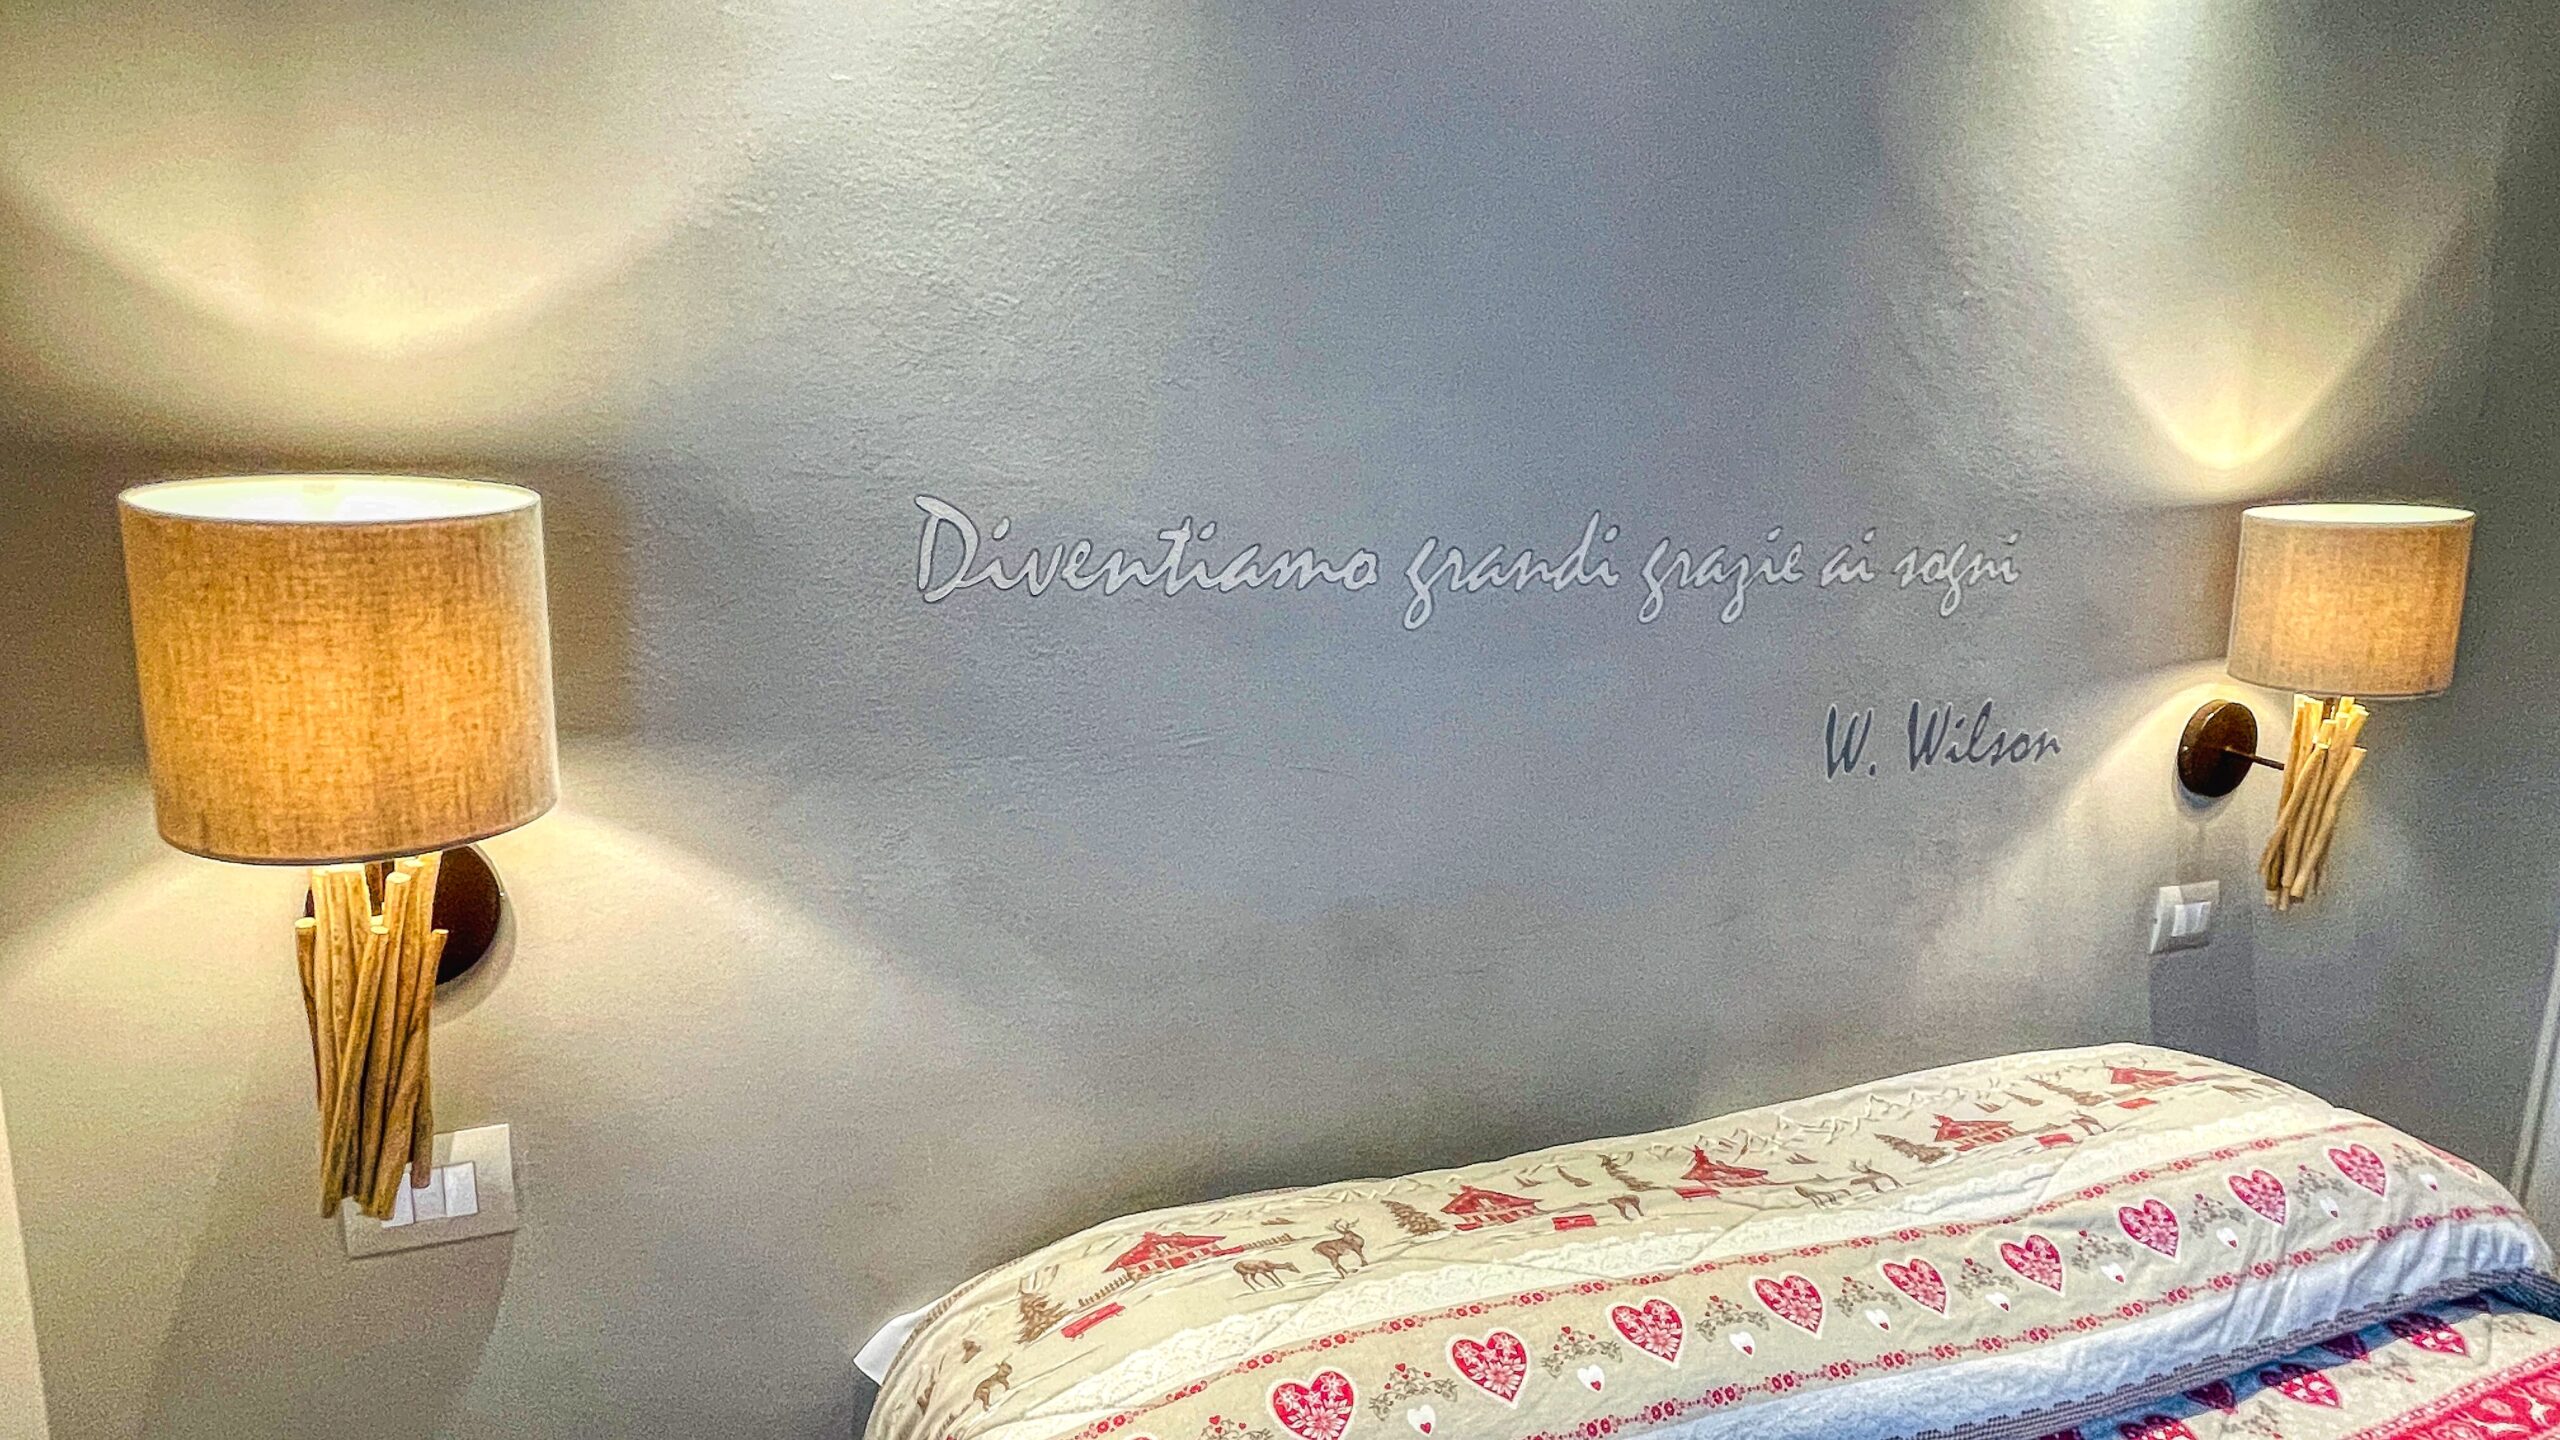 Diventiamo grandi grazie ai sogni
W. Wilson